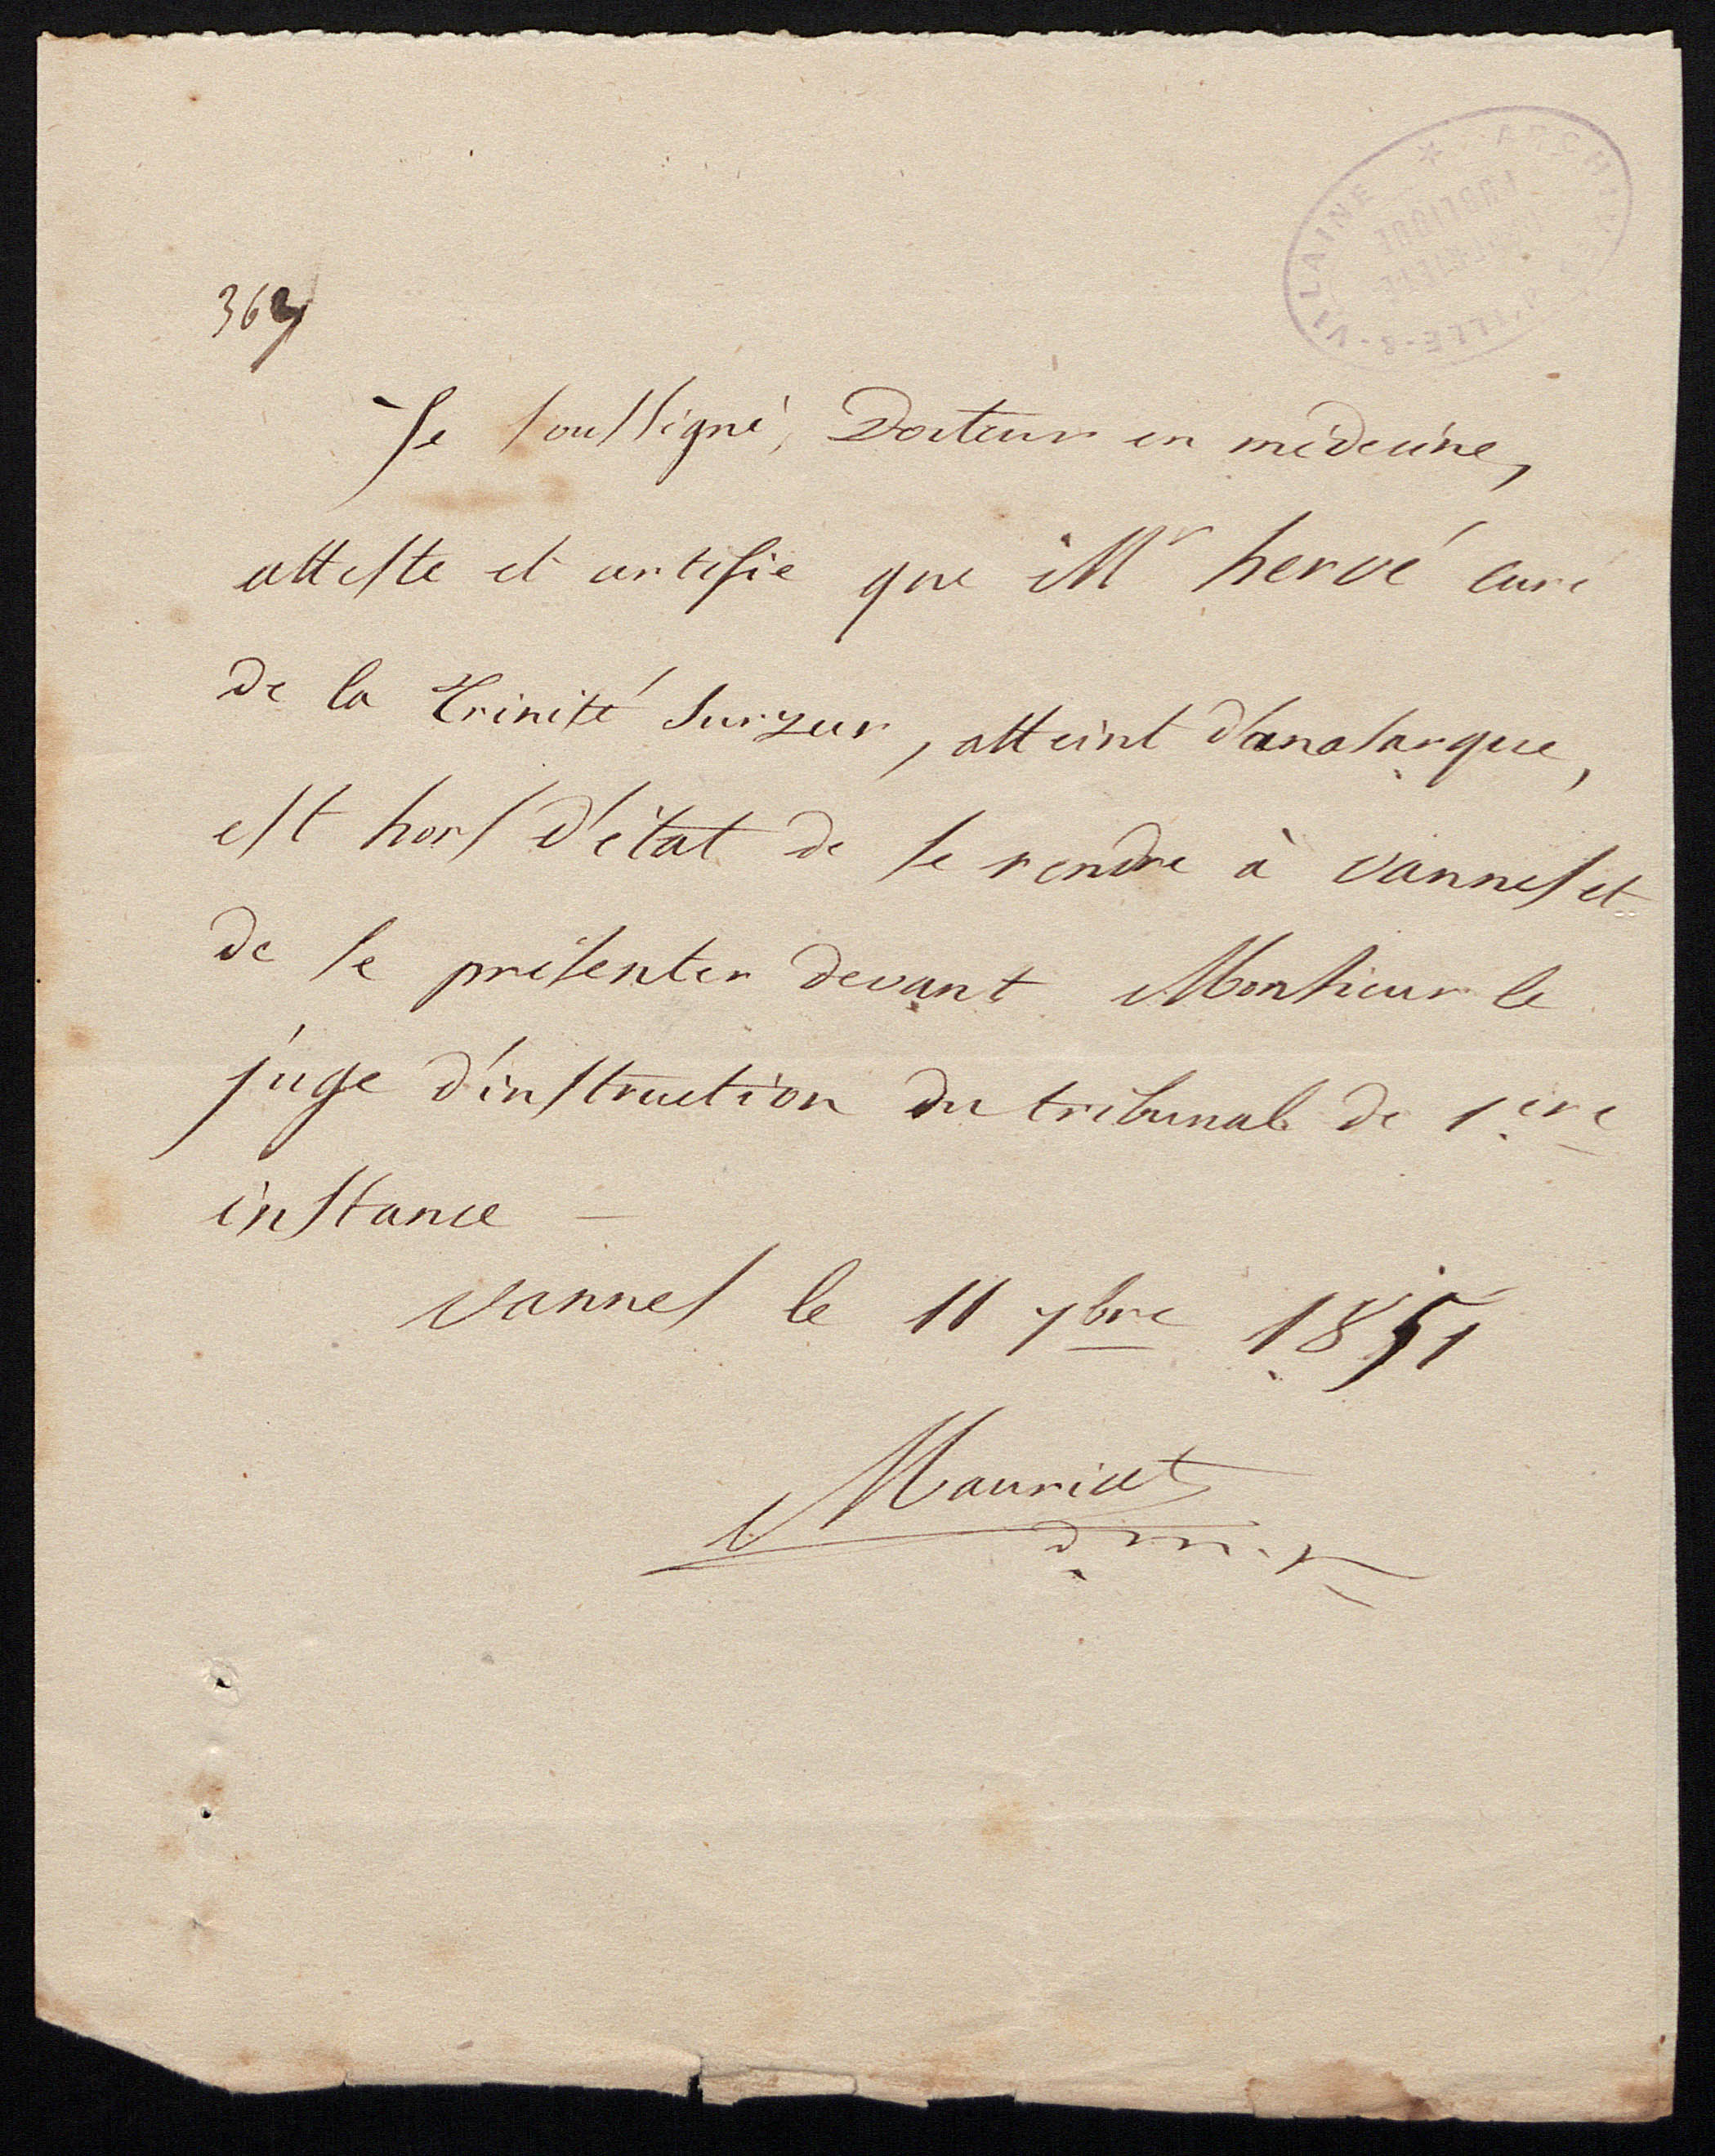 Je soussigné, Docteur en médecine,
atteste et certifie que Mr hervé curé
de la Trinité Surzur, atteint d'anasarque,
est hors d'état de se rendre à vannes et
de se présenter devant Monsieur le
juge d'instruction du tribunal de 1.ere
instance —
vannes le 11 7bre 1851
Mauricet
d. m. p
VILAINE * ARCHIVES D'ILLE-&-VILAINE